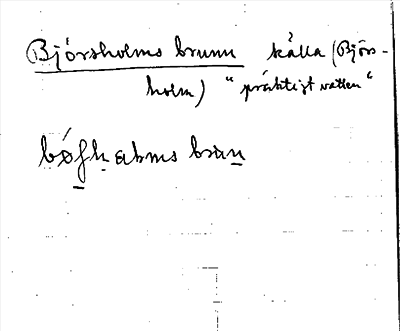 Björsholms brunn källa (Björs-
holm) "präktigt vatten"
bó̱fḥabms bran̲